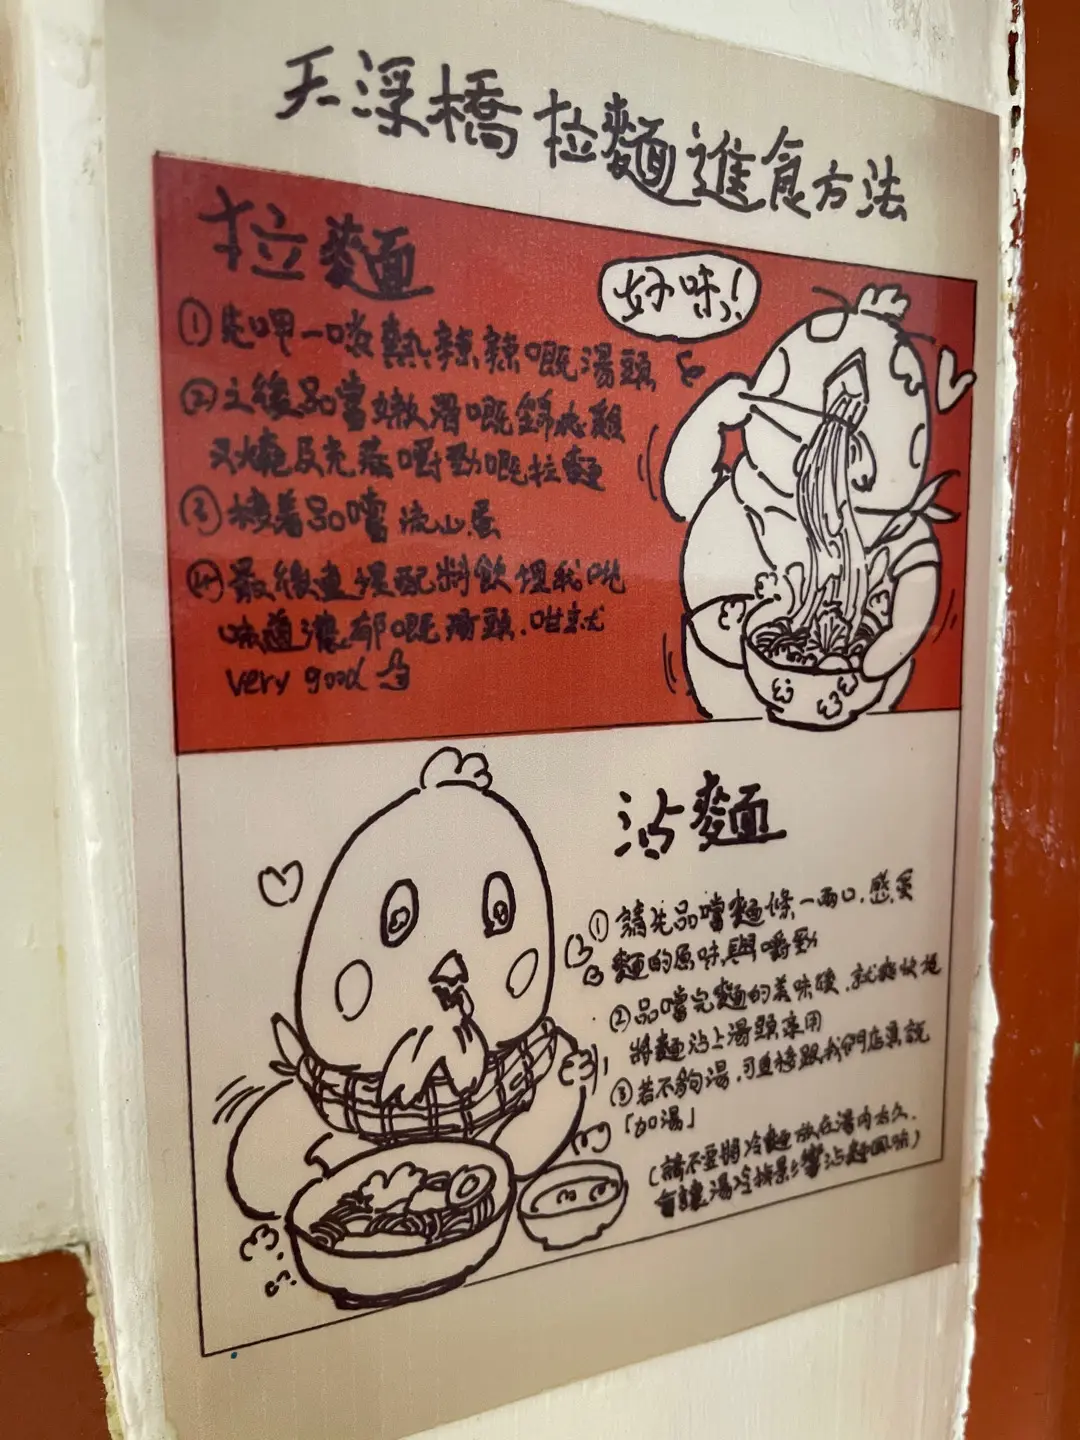 天浮橋 拉麵進食方法
拉麵
好味!
①先呷一啖熱辣辣嘅湯頭
②之後品嚐嫩滑嘅錦爽雞
叉燒及充滿嚼勁嘅拉麵
③接着品嚐流心蛋
④最後連埋配料飲埋我哋
味道濃郁嘅湯頭.咁就
very good
沾麵
①請先品嚐麵條一兩口.感受
麵的原味與嚼勁
②品嚐完麵的美味後.就爽快地
將麵沾上湯頭享用
③若不夠湯.可直接跟我們店員說
「加湯」
(請不要將冷麵放在湯內太久.
會讓湯冷掉影響沾麵風味)